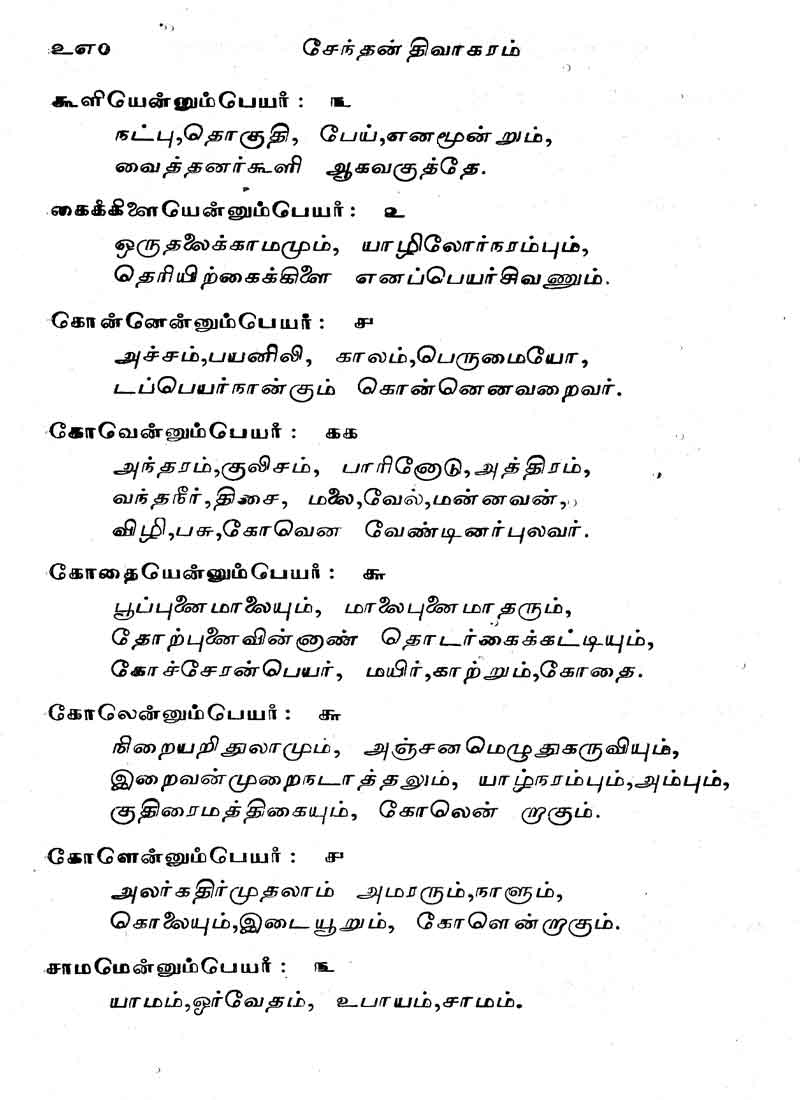 ௨௭0 சேந்தன் திவாகரம்
கூளியென்னும்பெயர் : ௩
நட்பு,தொகுதி, பேய்,எனமூன்றும்,
வைத்தனர்கூளி ஆகவகுத்தே.
கைக்கிளையென்னும்பெயர் : ௨
ஒருதலைக்காமமும், யாழிலோர்நரம்பும்,
தெரியிற்கைக்கிளை எனப்பெயர்சிவணும்.
கொன்னென்னும்பெயர் : ௪
அச்சம்,பயனிலி, காலம்,பெருமையோ,
டப்பெயர்நான்கும் கொன்னெனவறைவர்.
கோவென்னும்பெயர் : ௧௧
அந்தரம்,குலிசம், பாரினோடு,அத்திரம்,
வந்தநீர்,திசை, மலை,வேல்,மன்னவன்,
விழி,பசு,கோவென வேண்டினர்புலவர்.
கோதையென்னும்பெயர் : ௬
பூப்புனைமாலையும், மாலைபுனைமாதரும்,
தோற்புனைவின்னாண் தொடர்கைக்கட்டியும்,
கோச்சேரன்பெயர், மயிர்,காற்றும்,கோதை.
கோலென்னும்பெயர் : ௬
நிறையறிதுலாமும், அஞ்சனமெழுதுகருவியும்,
இறைவன்முறைநடாத்தலும், யாழ்நரம்பும்,அம்பும்,
குதிரைமத்திகையும், கோலென் றாகும்.
கோளென்னும்பெயர் : ௪
அலர்கதிர்முதலாம் அமரரும்,நாளும்,
கொலையும்,இடையூறும், கோளென்றாகும்.
சாமமென்னும்பெயர் : ௩
யாமம்,ஓர்வேதம், உபாயம்,சாமம்.